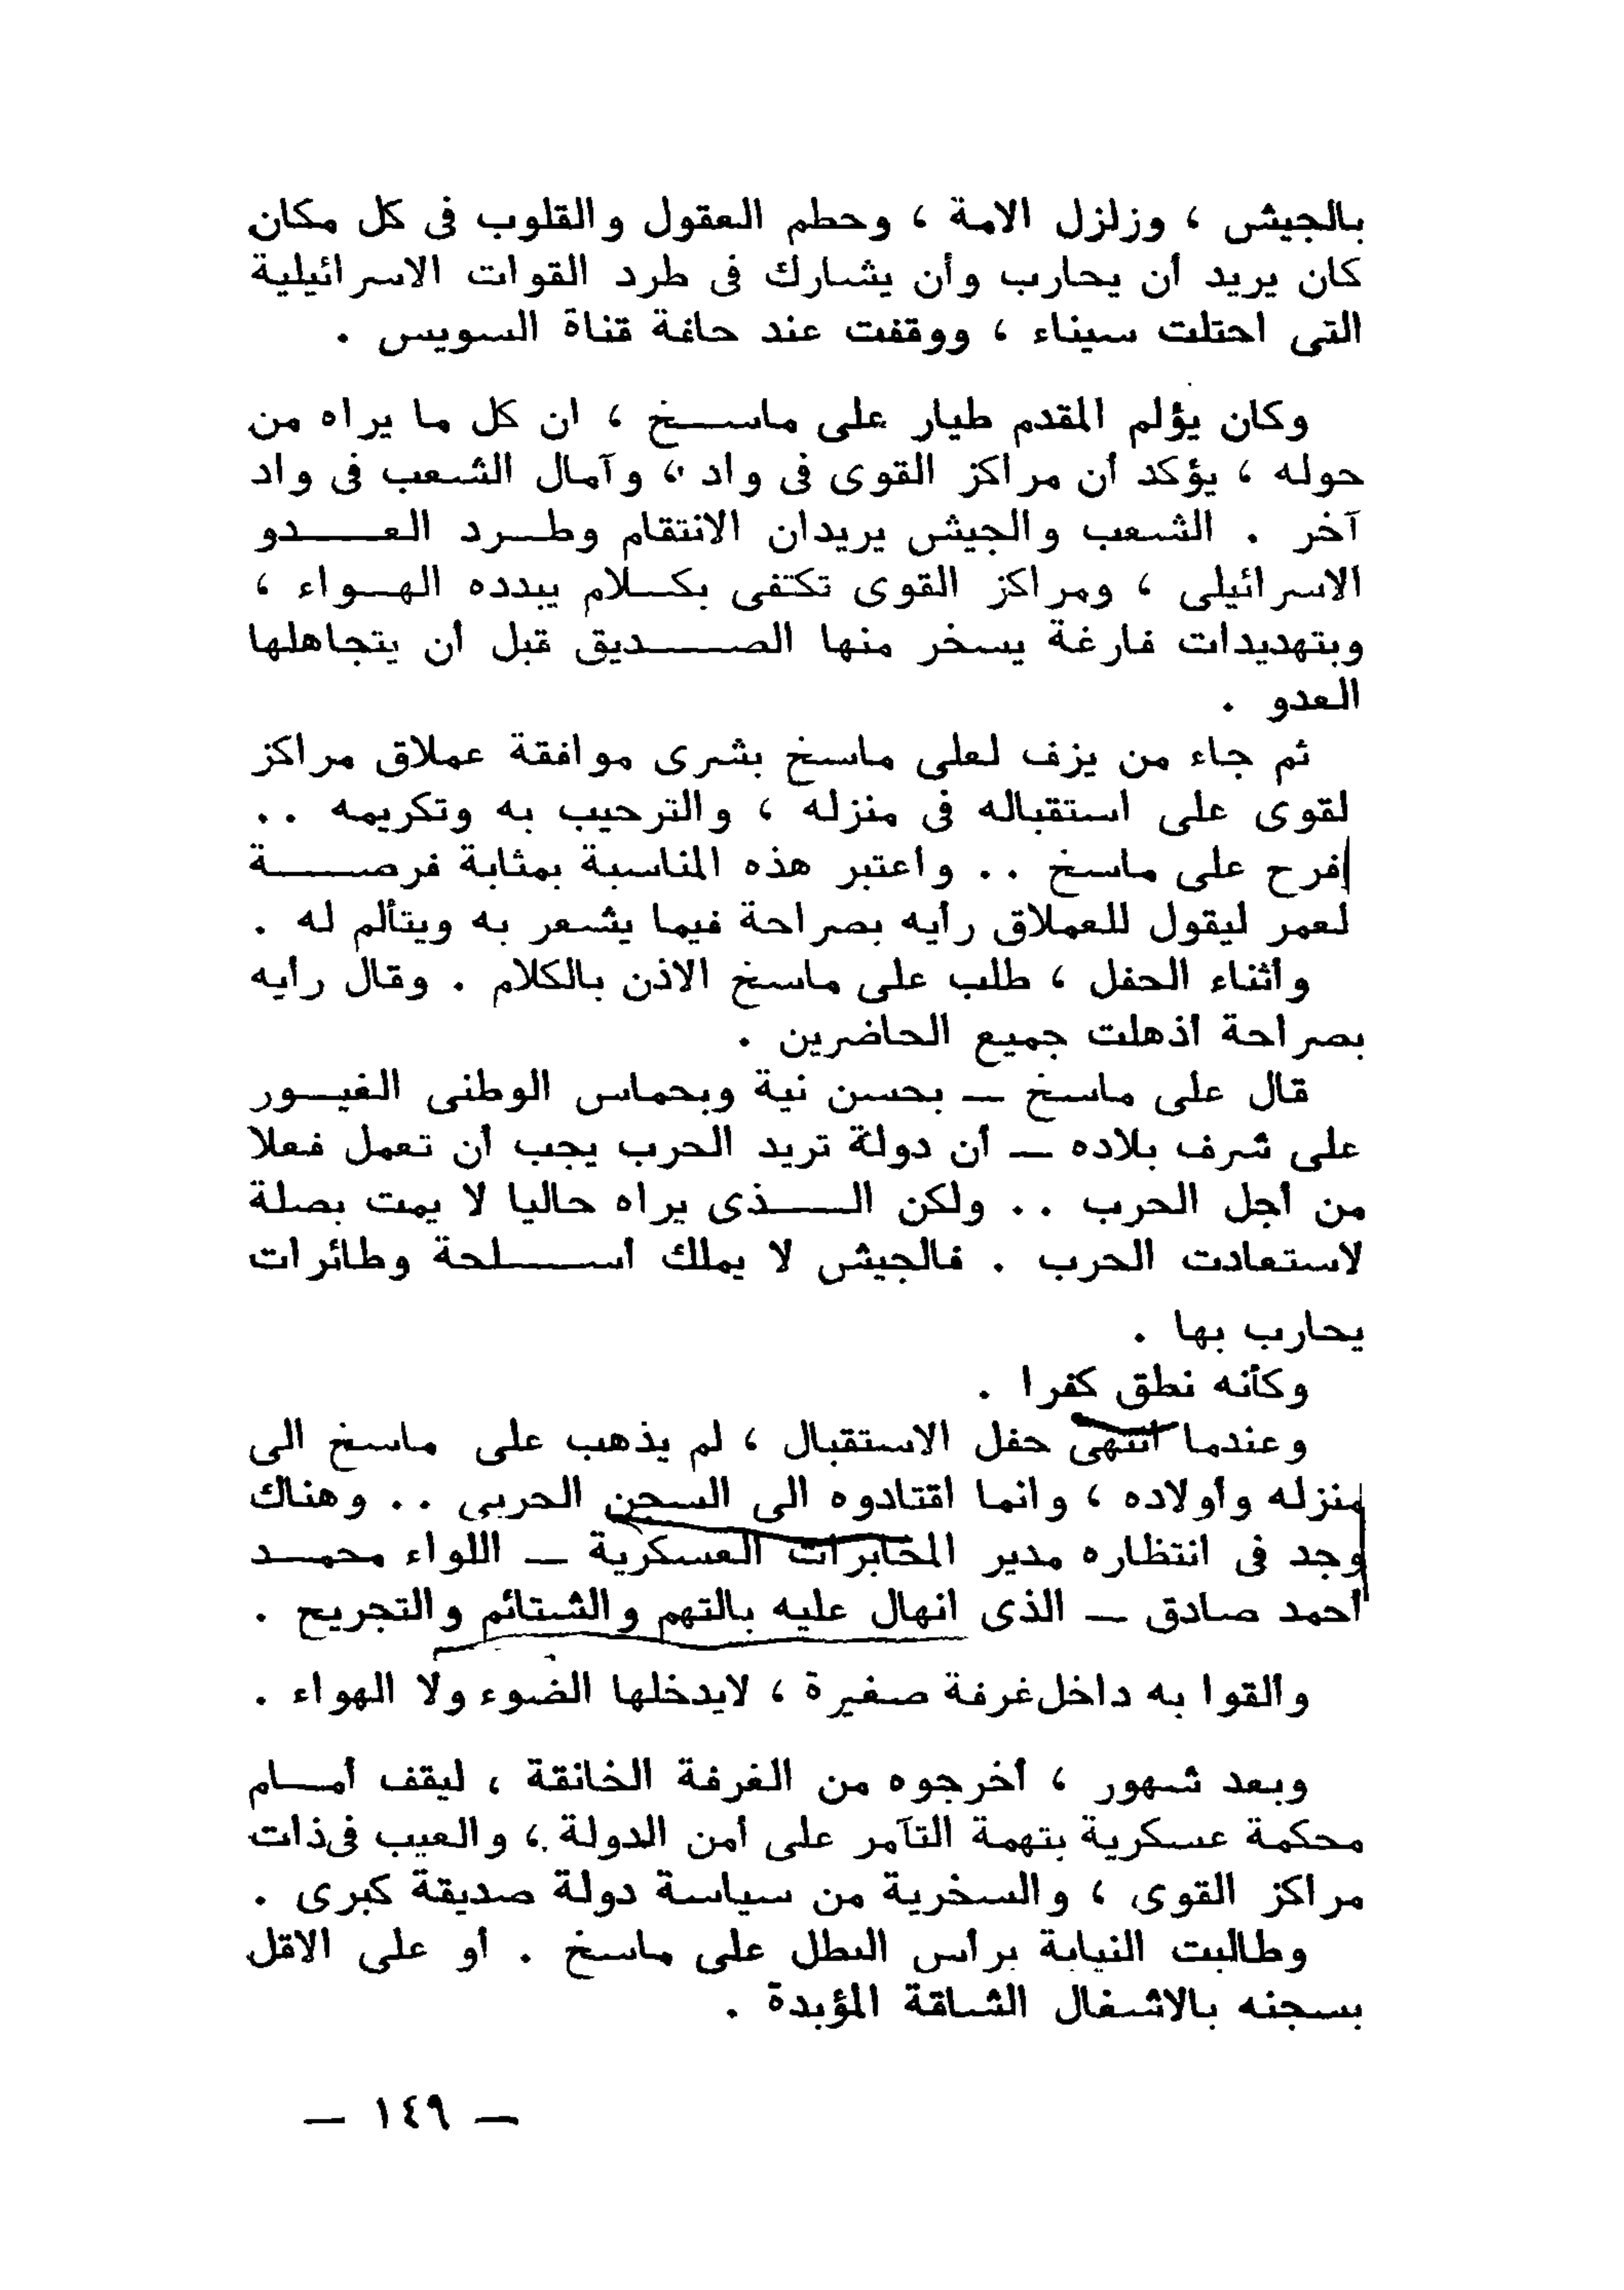 بالجيش ، وزلزل الامة ، وحطم العقول والقلوب فى كل مكان
كان يريد أن يحارب وأن يشارك فى طرد القوات الاسرائيلية
التى احتلت سيناء ، ووقفت عند حافة قناة السويس .
وكان يؤلم المقدم طيار على ماسخ ، ان كل ما يراه من
حوله ، يؤكد أن مراكز القوى فى واد ، وآمال الشعب فى واد
آخر . الشعب والجيش يريدان الانتقام وطرد العدو
الاسرائيلى ، ومراكز القوى تكتفى بكلام يبدده الهواء ،
وبتهديدات فارغة يسخر منها الصديق قبل أن يتجاهلها
العدو .
ثم جاء من يزف لعلى ماسخ بشرى موافقة عملاق مراكز
لقوى على استقباله فى منزله ، والترحيب به وتكريمه ..
فرح على ماسخ .. واعتبر هذه المناسبة بمثابة فرصة
لعمر ليقول للعملاق رأيه بصراحة فيما يشعر به ويتألم له .
وأثناء الحفل ، طلب على ماسخ الاذن بالكلام . وقال رأيه
بصراحة أذهلت جميع الحاضرين .
قال على ماسخ — بحسن نية وبحماس الوطنى الغيور
على شرف بلاده — أن دولة تريد الحرب يجب أن تعمل فعلا
من أجل الحرب .. ولكن الذى يراه حاليا لا يمت بصلة
لاستعادت الحرب . فالجيش لا يملك أسلحة وطائرات
يحارب بها .
وكأنه نطق كفرا .
وعندما انتهى حفل الاستقبال ، لم يذهب على ماسخ الى
منزله وأولاده ، وانما اقتادوه الى السجن الحربى .. وهناك
وجد فى انتظاره مدير المخابرات العسكرية — اللواء محمد
أحمد صادق — الذى انهال عليه بالتهم والشتائم والتجريح .
وألقوا به داخل غرفة صغيرة ، لايدخلها الضوء ولا الهواء .
وبعد شهور ، أخرجوه من الغرفة الخانقة ، ليقف أمام
محكمة عسكرية بتهمة التآمر على أمن الدولة ، والعيب فى ذات
مراكز القوى ، والسخرية من سياسة دولة صديقة كبرى .
وطالبت النيابة برأس البطل على ماسخ . أو على الاقل
بسجنه بالاشغال الشاقة المؤبدة .
— ١٤٩ —